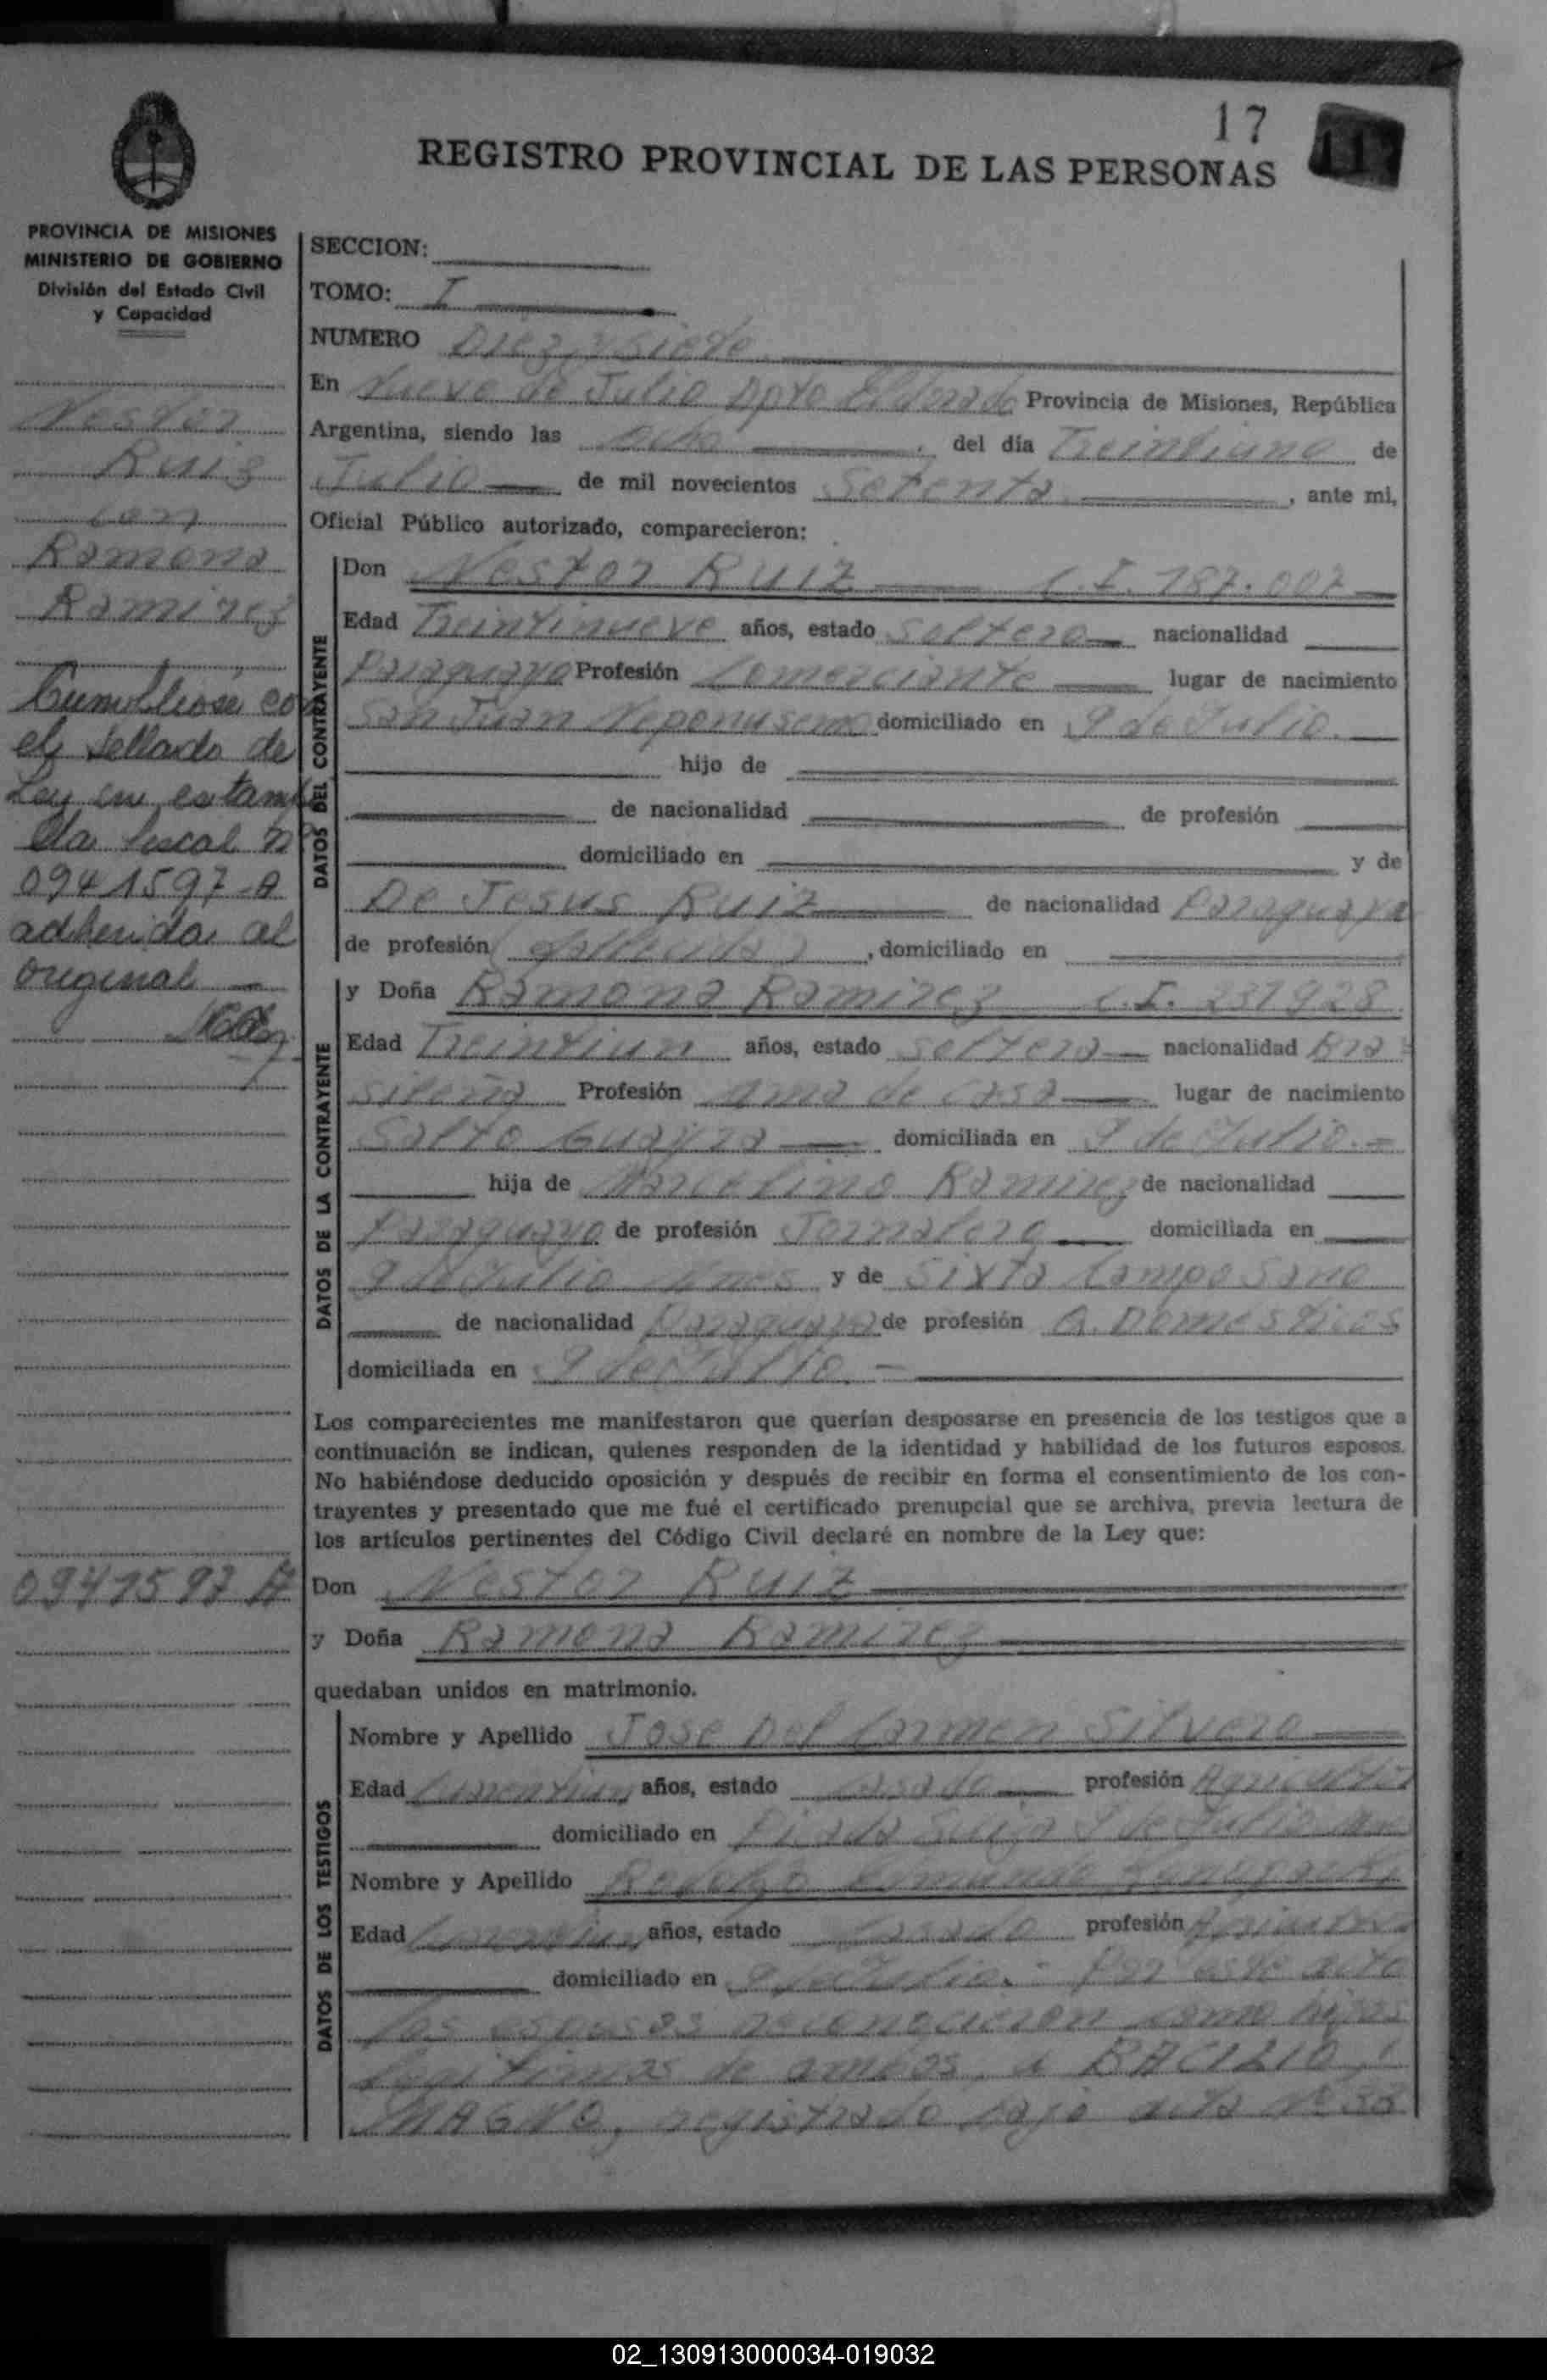 17
117
REGISTRO PROVINCIAL DE LAS PERSONAS
PROVINCIA DE MISIONES
MINISTERIO DE GOBIERNO
División del Estado Civil
y Capacidad
Nestor
Ruiz
con
Ramona
Ramirez
Cumpliose con
el sellado de
Ley en estampi
lla fiscal nº
0941597-A
adherida al
original
0941597 A
SECCION:
TOMO: I
NUMERO Diez y siete
En Nueve de Julio Dpto Eldorado Provincia de Misiones, República
Argentina, siendo las ocho del día Treintiuno de
Julio de mil novecientos Setenta, ante mi,
Oficial Público autorizado, comparecieron:
DATOS DEL CONTRAYENTE
Don Nestor Ruiz C.I. 187.007
Edad Treintinueve años, estado soltero nacionalidad
Paraguaya Profesión Comerciante lugar de nacimiento
San Juan Neponuseno domiciliado en 9 de Julio.
hijo de
de nacionalidad de profesión
domiciliado en y de
De Jesus Ruiz de nacionalidad Paraguaya
de profesión (fallecida), domiciliado en
DATOS DE LA CONTRAYENTE
y Doña Ramona Ramirez C.I. 237928
Edad Treintiun años, estado soltera nacionalidad Bra-
sileña Profesión ama de casa lugar de nacimiento
Salto Guayra domiciliada en 9 de Julio.-
hija de Marcelino Ramirez de nacionalidad
Paraguayo de profesión Jornalero domiciliada en
9 de Julio Mnes y de Sixta Camposano
de nacionalidad Paraguaya de profesión Q. Domesticos
domiciliada en 9 de Julio.-
Los comparecientes me manifestaron que querían desposarse en presencia de los testigos que a
continuación se indican, quienes responden de la identidad y habilidad de los futuros esposos.
No habiéndose deducido oposición y después de recibir en forma el consentimiento de los con-
trayentes y presentado que me fué el certificado prenupcial que se archiva, previa lectura de
los artículos pertinentes del Código Civil declaré en nombre de la Ley que:
Don Nestor Ruiz
y Doña Ramona Ramirez
quedaban unidos en matrimonio.
DATOS DE LOS TESTIGOS
Nombre y Apellido Jose Del Carmen Silvero
Edad años, estado casado profesión Agricultor
domiciliado en Picada Suiza 9 de Julio Mnes
Nombre y Apellido Rodolfo
Edad años, estado casado profesión Agricultor
domiciliado en 9 de Julio.- Por este acto
los esposos reconocieron como hijos
legitimos de ambos, a BACILIO,
MAGNO, registrado bajo acta Nº 38
02_130913000034-019032